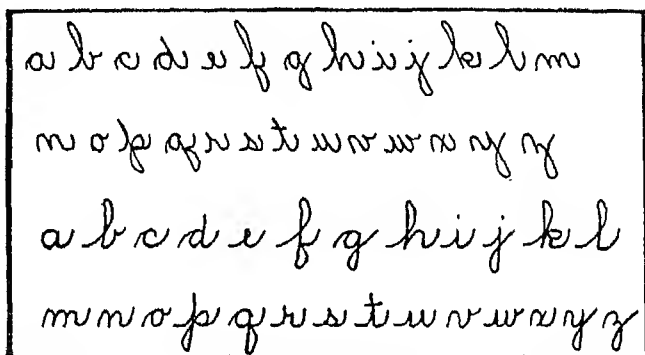 a b c d e f g h i j k l m
n o p q r s t u v w x y z
a b c d e f g h i j k l
m n o p q r s t u v w x y z